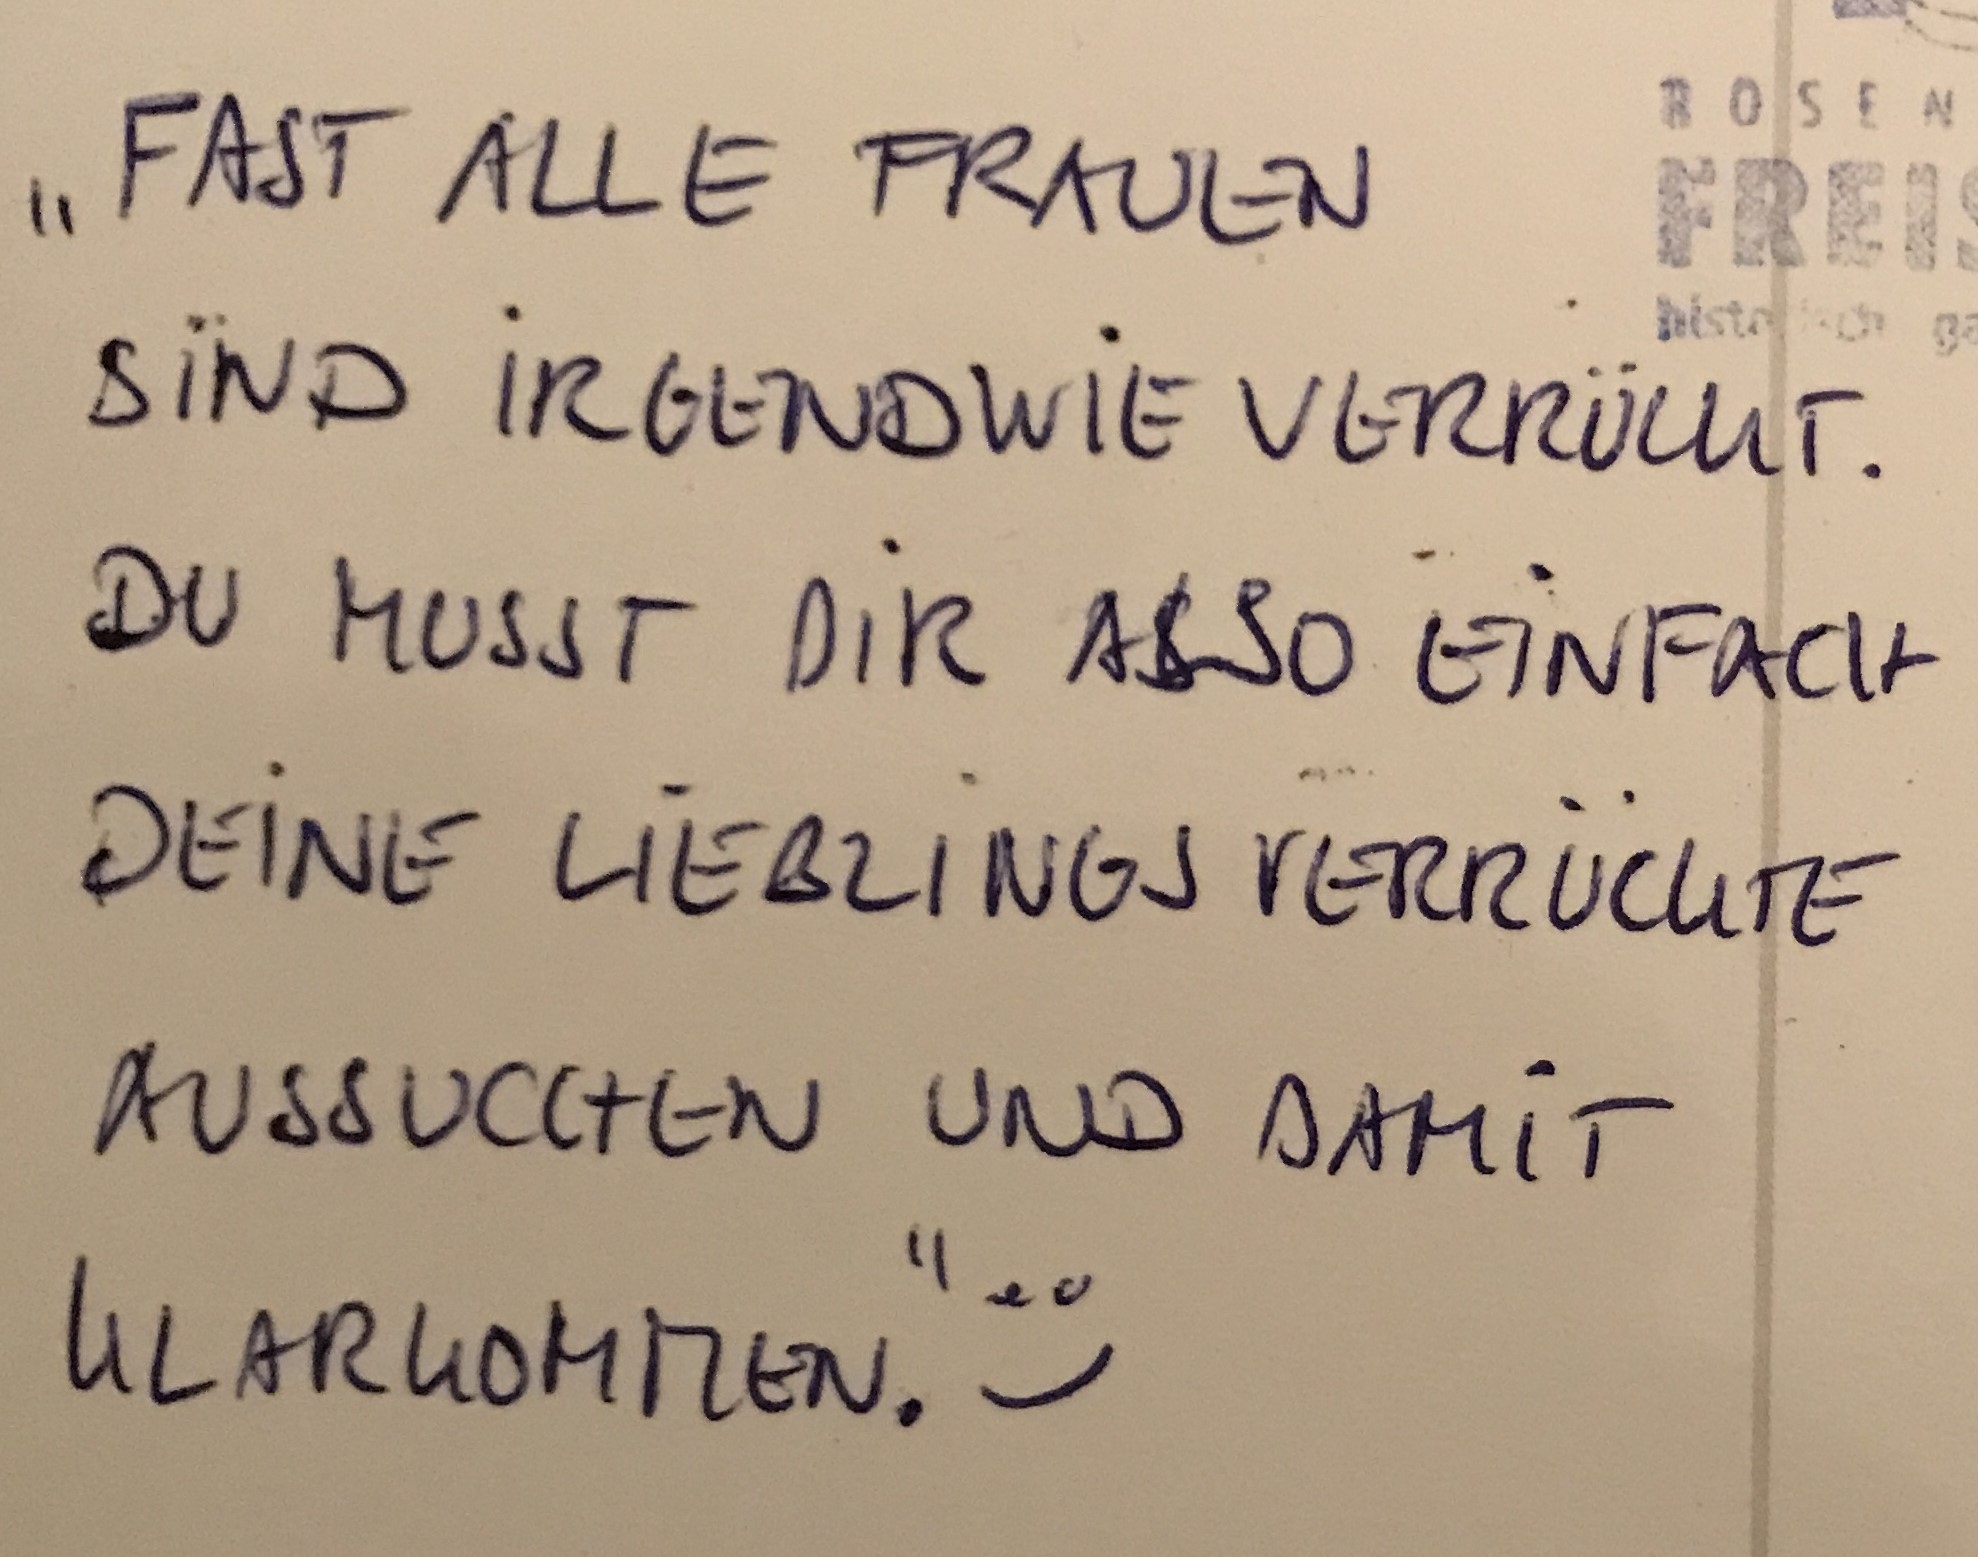 „FAST ALLE FRAUEN
SIND IRGENDWIE VERRÜCKT.
DU MUSST DIR ALSO EINFACH
DEINE LIEBLINGSVERRÜCKTE
AUSSUCHEN UND DAMIT
KLARKOMMEN."
ROSEN
FREIS
historisch ga